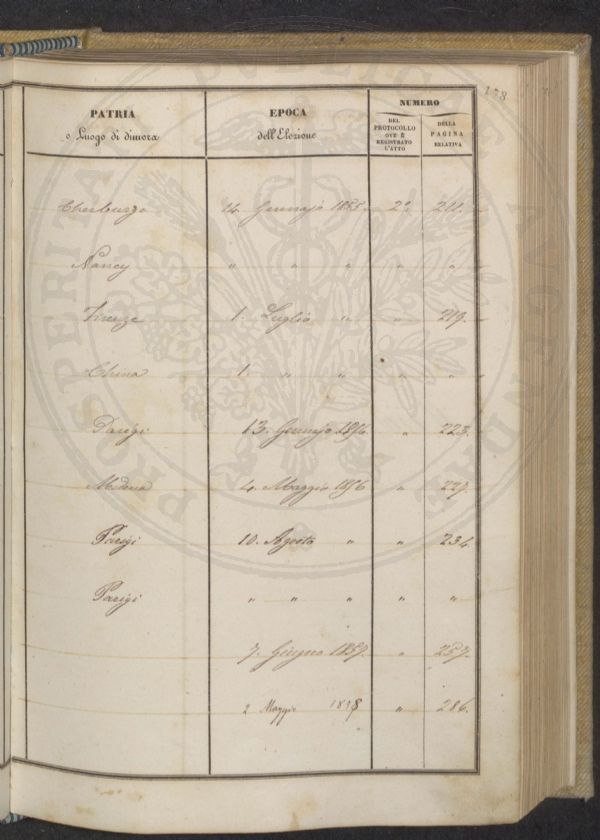 173
PATRIA
o Luogo di dimora
EPOCA
dell'Elezione
NUMERO
DEL
PROTOCOLLO
OVE È
REGISTRATO
L'ATTO
DELLA
PAGINA
RELATIVA
Cherburgo 14. Gennajo 1855. 2° 211.
Nancy " " " " "
Firenze 1. Luglio " " 219.
China 1. " " " "
Parigi 13. Gennajo 1856 " 223.
Modena 4. Maggio 1856 " 227.
Parigi 10. Agosto " " 234.
Parigi " " " " "
7. Giugno 1857. " 257.
2 Maggio 1858 " 286.
PROSPERITATI PUBLICAE AUGENDAE